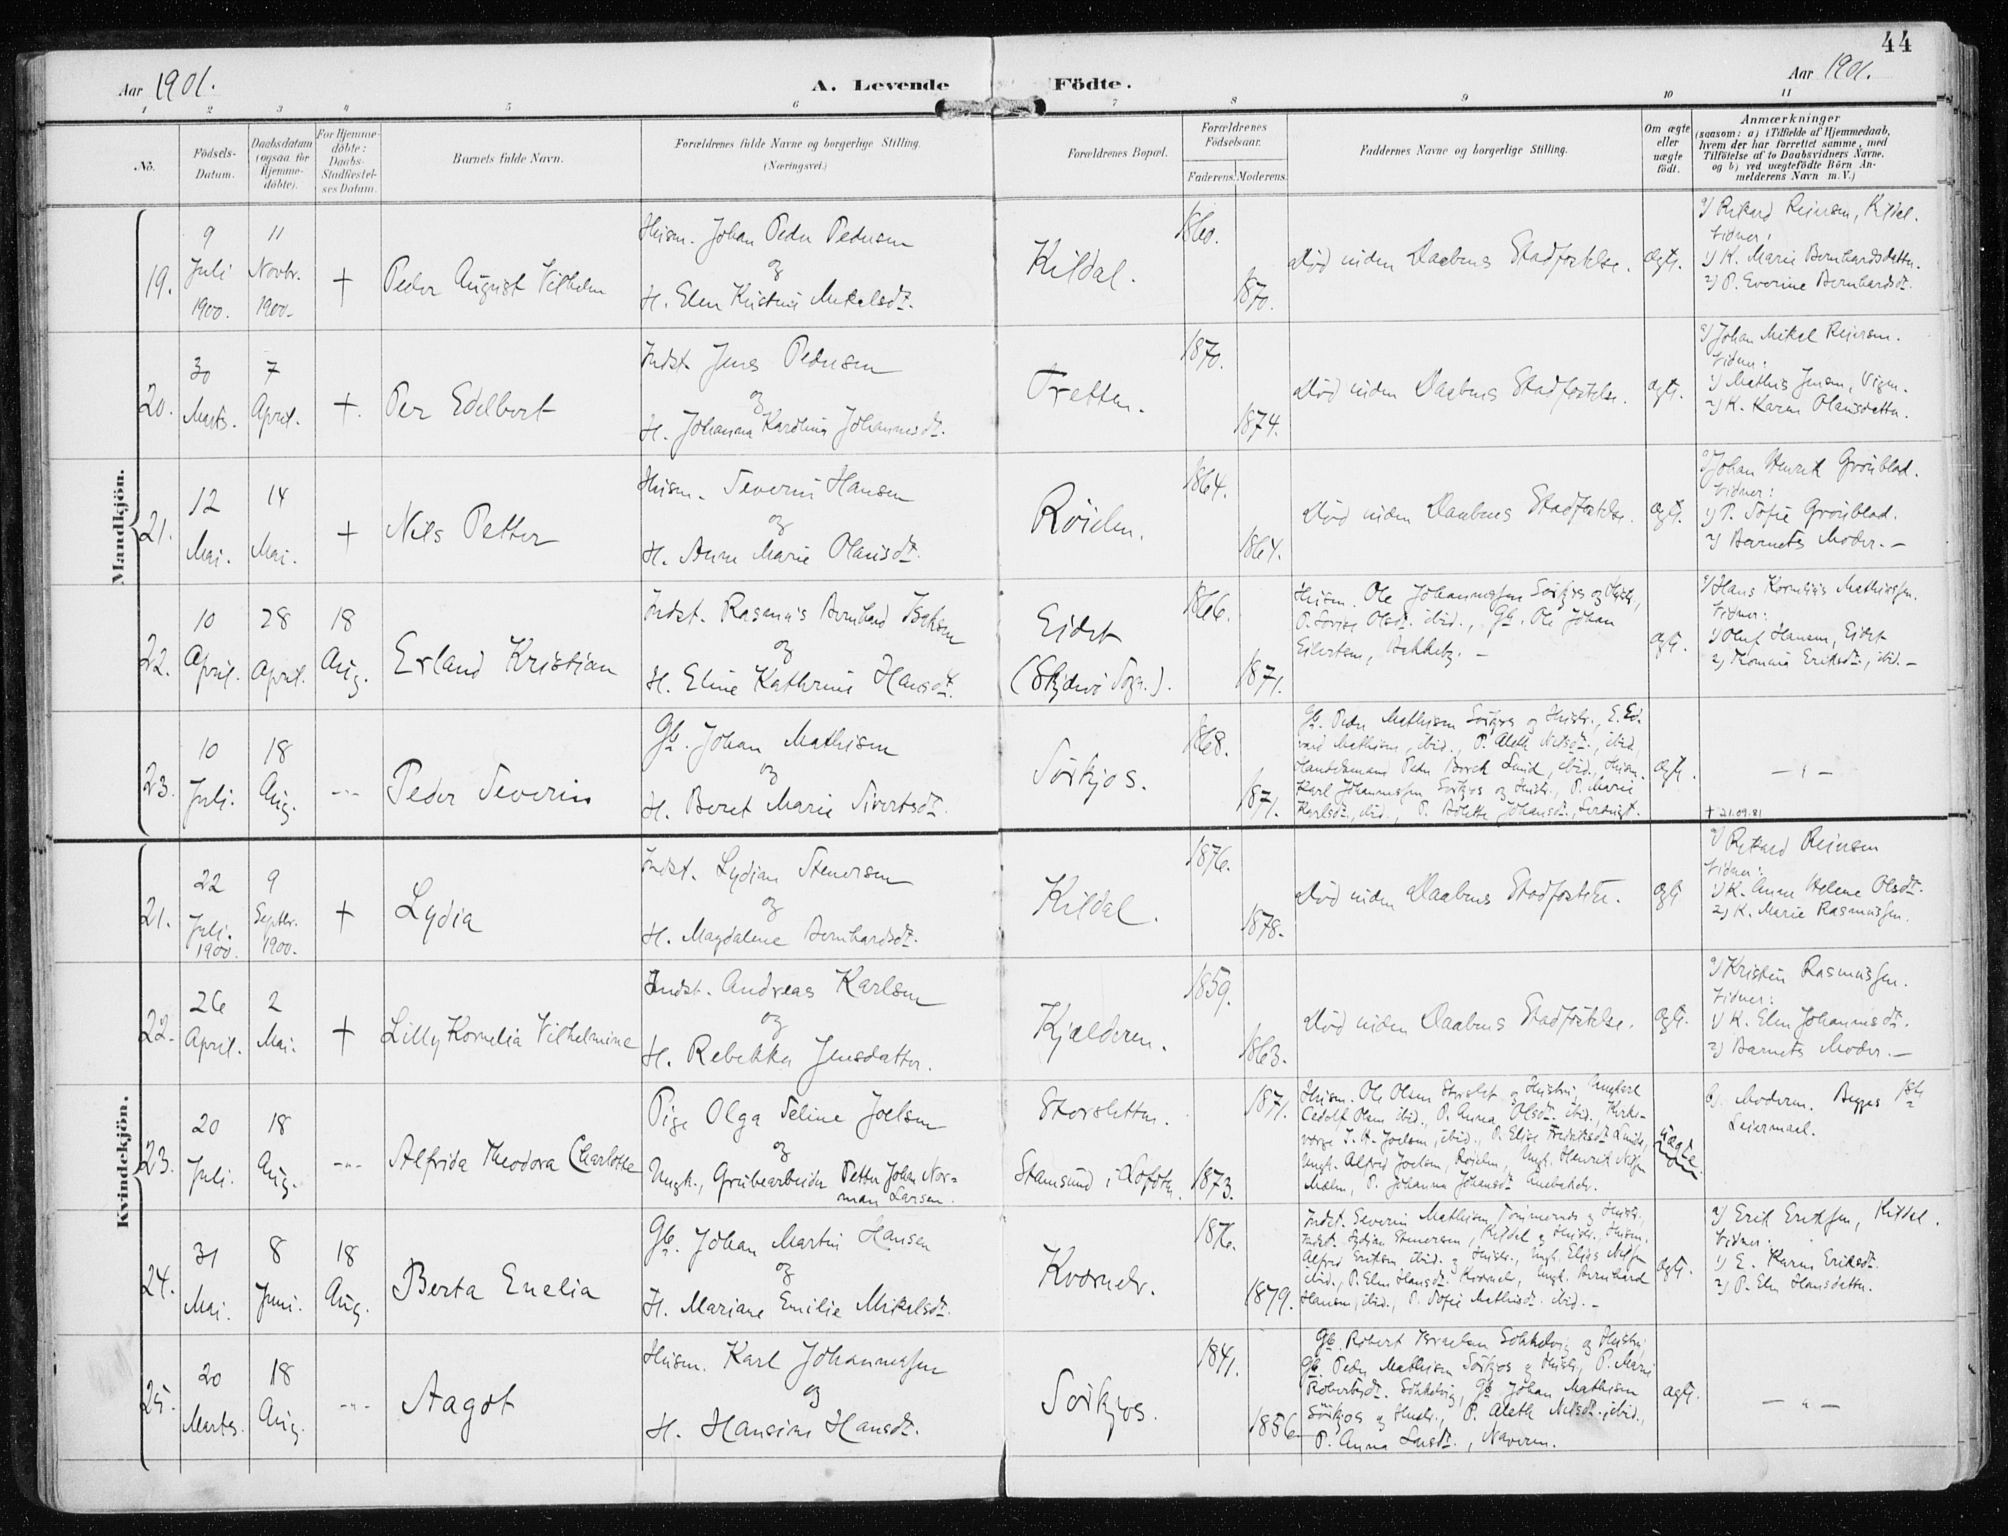 44
Aar 1901.
A. Levende Födte.
Aar 1901.
1 2 3 4 5 6 7 8 9 10 11
No.
Födsels-
Datum.
Daabsdatum
(ogsaa for
Hjemme-
döbte).
For Hjemme-
döbte:
Daabs-
Stadfæstel-
ses Datum.
Barnets fulde Navn.
Forældrenes fulde Navne og borgerlige Stilling.
(Næringsvei.)
Forældrenes Bopæl.
Forældrenes
Födselsaar.
Faderens. Moderens.
Faddernes Navne og borgerlige Stilling.
Om ægte
eller
uægte
födt.
Anmærkninger
(saasom: a) i Tilfælde af Hjemmedaab,
hvem der har forrettet samme, med
Tilföielse af to Daabsvidners Navne,
og b) ved uægtefödte Börn An-
melderens Navn m. V.)
Mandkjön.
19.
9
Juli
1900.
11
Novbr.
1900.
+
Peder August Vilhelm
Husm. Johan Peder Pedersen
og
H. Elen Kristine Mikelsdt.
Kildal.
1860.
1870.
Död inden Daabens Stadfæstelse.
ægte.
a) Rikard Reiersen, Kildal.
Vidner:
1) K. Marie Bernhardsdatter.
2) P. Everine Bernhardsdt.
20.
30
Marts.
7
April.
+.
Per Edelbert
Indst. Jens Pedersen
og
H. Johanna Karoline Johannesdt.
Tretten.
1870.
1874.
Död inden Daabens Stadfæstelse.
ægte.
a) Johan Mikal Reiersen.
Vidner:
1) Mathis Jensen,
2) K. Karen Olausdatter.
21.
12
Mai.
14
Mai.
+
Nils Petter
Husm. Severin Hansen
og
H. Anne Marie Olausdt.
Röielen.
1864.
1864.
Död inden Daabens Stadfæstelse.
ægte.
a) Johan Henrik Grönblad.
Vidner:
1) P. Sofie Grönblad.
2) Barnets Moder. —
22.
10
April.
28
April.
18
Aug.
Erland Kristian
Indst. Rasmus Bernhard Isaksen
og
H. Eline Kathrine Hansdt.
Eidet
(Skjervö Sogn.).
1866.
1871.
Husm. Ole Johannessen Sörkjos og Hustr.,
P. Olsdt. ibid., Gb. Ole Johan
Eilertsen, Bakkeby. —
ægte.
a) Hans Kornelius Mathiassen.
Vidner:
1) Oluf Hansen, Eidet
2) Eriksdt., ibid. —
23.
10
Juli.
18
Aug.
-"-
Peder Severin
Gb. Johan Mathisen
og
H. Beret Marie Sivertsdt.
Sörkjos.
1868.
1871.
Gb. Peder Mathisen Sörkjos og Hustr., E. Ed-
vard Mathisen, ibid., P. Aleth Nilsdt., ibid,
Handelsmand Peder Borch Lund, ibid., Husm.
Karl Johannessen Sörkjos og Hustr., P. Marie
Karlsdt., ibid., P. Johansdt.,
ægte.
— " —
+ 21.09.81
Kvindekjön.
21.
22
Juli.
1900.
9
Septbr.
1900.
+
Lydia
Indst. Lydian Stenersen
og
H. Magdalene Bernhardsdt.
Kildal.
1876.
1878.
Död inden Daabens Stadfæstelse.
ægte
a) Rikard Reiersen
Vidner:
1) K. Anne Helene Olsdt.
2) K. Marie Rasmussen.
22.
26
April.
2
Mai.
+
Lilly Kornelia Vilhelmine
Indst. Andreas Karlsen
og
H. Rebekka Jensdatter.
Kjælderen.
1859.
1863.
Död inden Daabens Stadfæstelse.
ægte.
a) Kristen Rasmussen.
Vidner:
1) K. Elen Johannesdt.
2) Barnets Moder. —
23.
20
Juli.
18
Aug.
-"-
Alfrida Theodora Charlotte
Pige Olga Seline Joelsen
og
Ungk., Grubearbeider Petter Johan Nor-
man Larsen.
Storsletten.
Stamsund i Lofoten.
1871.
1873.
Husm. Ole Olsen Storslet og Hustru, Ungkarl
Olsen ibid., P. Anna Olsdt. ibid., Kirke-
verge J. H. Joelsen, ibid., P. Elise Fredriksdt. Lund,
Ungk. Alfred Joelsen, Röielen, Ungk. Henrik
P. Johanna Johansdt.
Uægte.
b) Moderen. Begges 1ste
Leiermaal.
24.
31
Mai.
8
Juni.
18
Aug.
Berta Enelia
Gb. Johan Martin Hansen
og
H. Mariane Emilie Mikelsdt.
Kvænnelv.
1876.
1879.
Indst. Severin Mathisen, og Hustr.,
Indst. Lydian Stenersen, Kildal og Hustr., Husm.
Alfred Eriksen, ibid. og Hustr., Ungk. Elias
ibid., P. Elen Hansdt. Ungk. Bernhard
Hansen, ibid., P. Sofie Mathisdt. ibid. —
ægte.
a) Erik Eriksen, Kildal.
Vidner:
1) E. Karen Eriksdt.
2) P. Elen Hansdatter.
25.
20
Marts.
18
Aug.
-"-
Aagot
Husm. Karl Johannessen
og
H. Hansine Hansdt.
Sörkjos.
1841.
1856.
Gb. Robert Israelsen Sokkelvig og Hustru,
Gb. Peder Mathisen Sörkjos og Hustr., P. Marie
Robertsdt. Sokkelvig, Gb. Johan Mathisen
Sörkjos og Hustr., P. Aleth Nilsdt. ibid.,
P. Anna Larsdt.,
ægte.
— " —